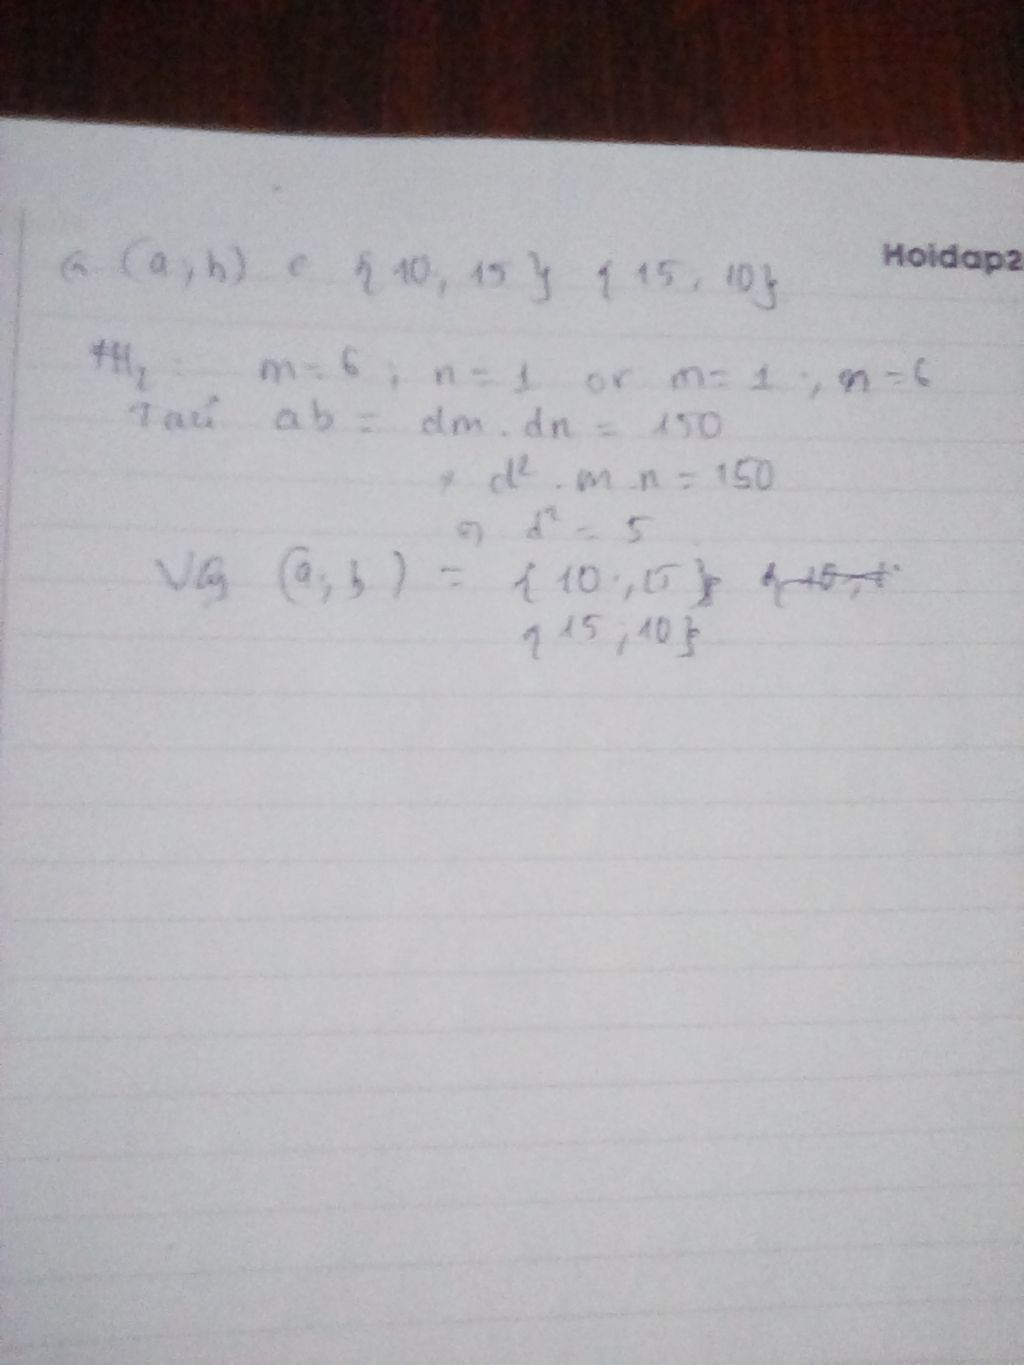 (a, b) ∈ {10, 15} {15, 10}
Hoidap2
TH2: m = 6 ; n = 1 or m = 1 ; n = 6
ab = dm . dn = 150
d² . m . n = 150
d² = 5
Vậy (a, b) = {10 ; 15}
{15 ; 10}